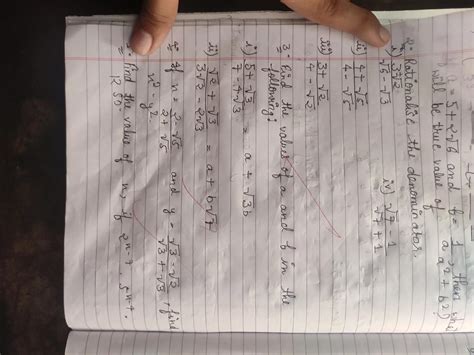 If a = 5 + 2√6 and b = 1/a, then the
will be true value of a² + b²?
2:- Rationalise the denominator.
i) 3√2 / √5 - √3
iv) √7 - 1 / √7 + 1
ii) 4 + √5 / 4 - √5
iii) 3 + √2 / 4 - √2
3:- Find the values of a and b in the
following:
i) 5 + √3 / 7 - 4√3 = a + √3b
ii) √2 + √3 / 3√2 - 2√3 = a + b√7
If x = 2 - √5 / 2 + √5 and y = √3 - √3 / √3 + √3, find
x² - y².
Find the value of x, if 2ˣ⁻⁷ × 5ˣ⁻⁴ =
1250.